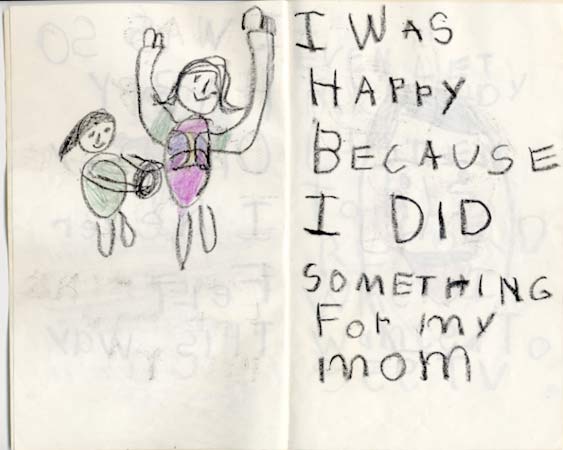 I WAS
HAPPY
BECAUSE
I DID
SOMETHING
For my
mom